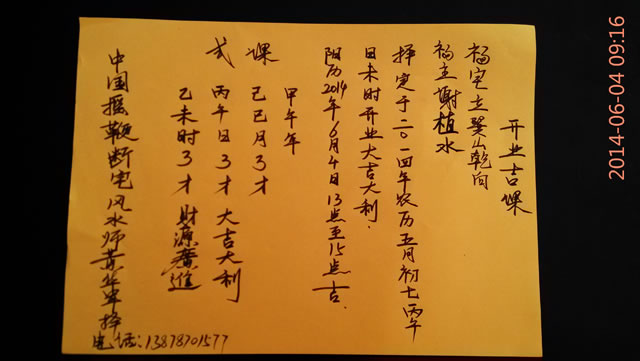 开业吉课
福宅立巽山乾向
福主谢植水
择定于二〇一四年农历五月初七丙午
日未时开业大吉大利.
阳历2014年6月4日13点至15点吉.
课式
甲午年
己巳月3才
丙午日3才大吉大利
乙未时3才財源廣進
中国摇鞭断宅风水师黄华军择
电话:13878701577
2014-06-04 09:16